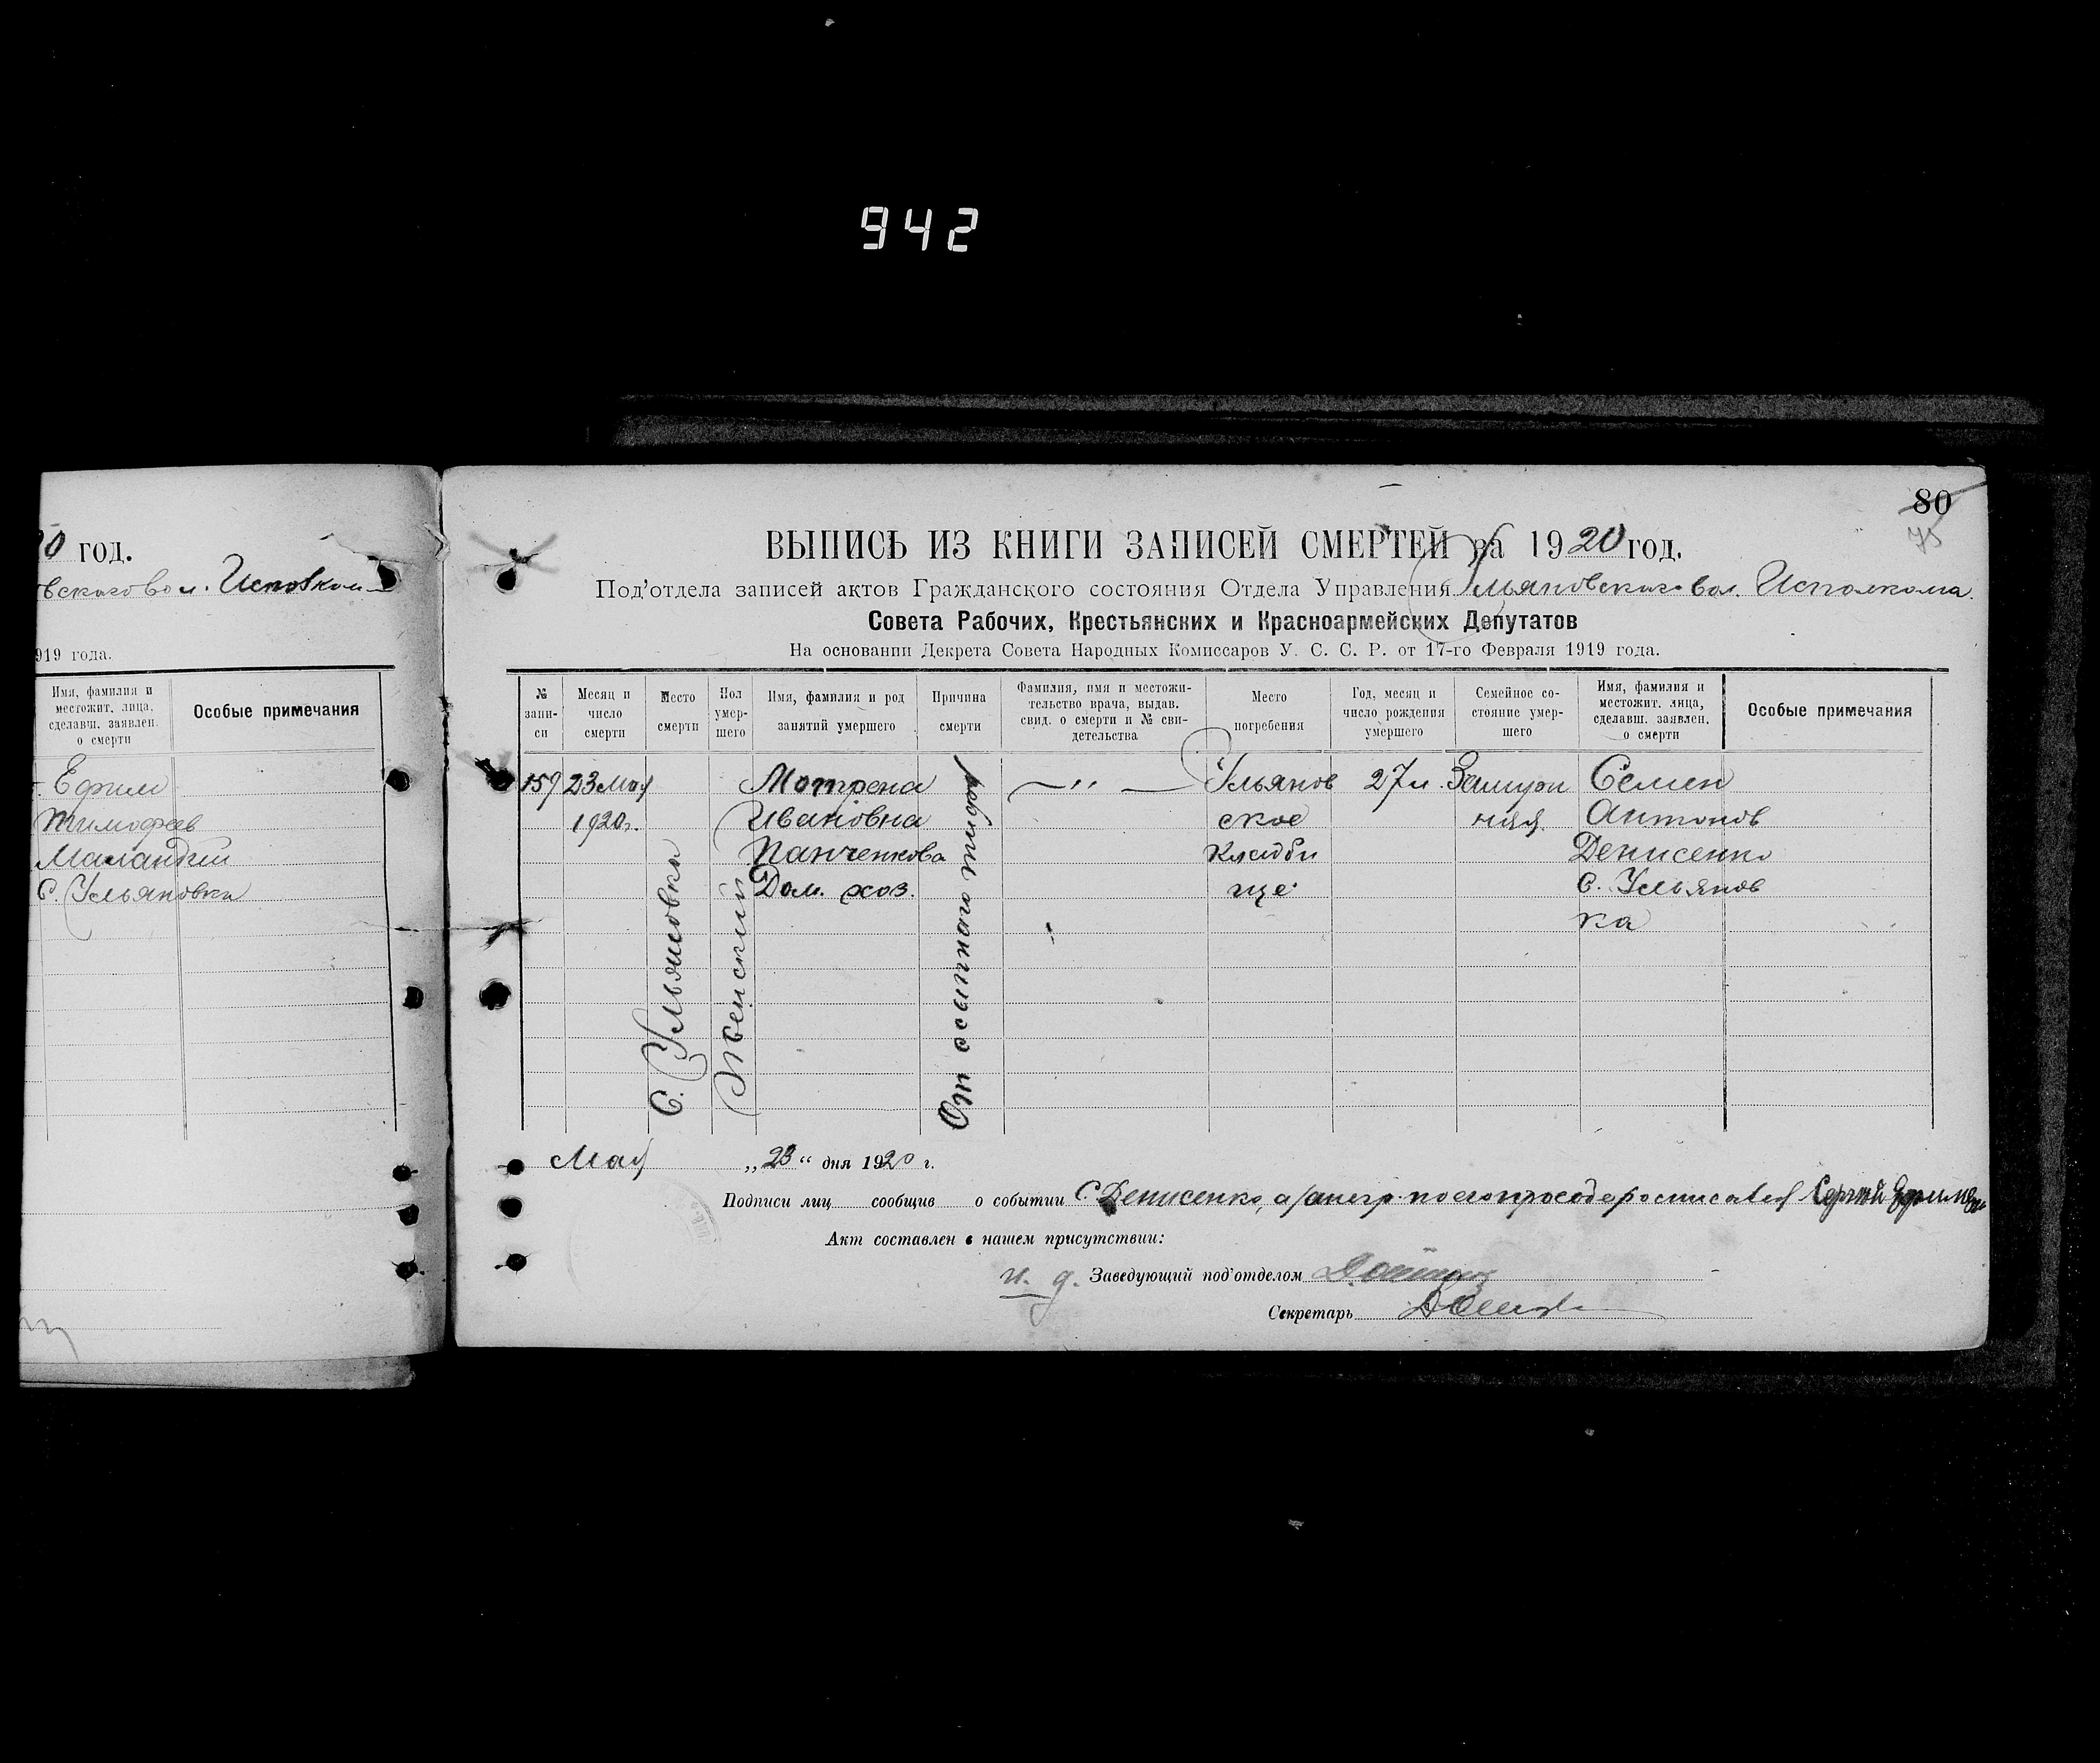 942
20 год.
вскаго вол. Исполком
919 года.
Имя, фамилия и
местожит. лица,
сделавш. заявлен.
о смерти
Особые примечания
Ефим
Тимофеев
Маландий
С. Ульяновка
80
75
ВЫПИСЬ ИЗ КНИГИ ЗАПИСЕЙ СМЕРТЕЙ за 1920 год.
Под'отдела записей актов Гражданского состояния Отдела Управления Ульяновскаго вол. Исполкома.
Совета Рабочих, Крестьянских и Красноармейских Депутатов
На основании Декрета Совета Народных Комиссаров У. С. С. Р. от 17-го Февраля 1919 года.
№
запи-
си
Месяц и
число
смерти
Место
смерти
Пол
умер-
шего
Имя, фамилия и род
занятий умершего
Причина
смерти
Фамилия, имя и местожи-
тельство врача, выдав.
свид. о смерти и № сви-
детельства
Место
погребения
Год, месяц и
число рождения
умершего
Семейное со-
стояние умер-
шего
Имя, фамилия и
местожит. лица,
сделавш. заявлен.
о смерти
Особые примечания
159
23 Мая
1920 г.
С. Ульяновка
Женский
Мотрена
Ивановна
Панченкова
Дом. хоз.
От сыпного тифа
— " —
Ульянов
ское
Кладби
ще
27 л.
Замуж
няя
Семен
Антонов
Денисенко
с. Ульянов
ка
Мая „23“ дня 1920 г.
Подписи лиц сообщив о событии С. Денисенко, а негр. по его просьбе росписался Сергей
Акт составлен в нашем присутствии:
и. д. Заведующий под'отделом
Секретарь